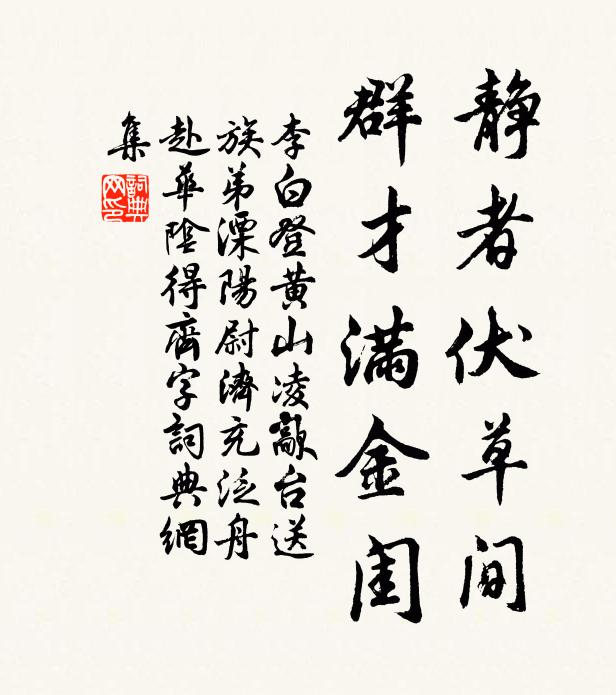 静者伏草间
群才满金闺
李白登黄山凌歊台送
族弟溧陽尉濟充泛舟
赴華陰得齊字詞典網
集
詞典网印